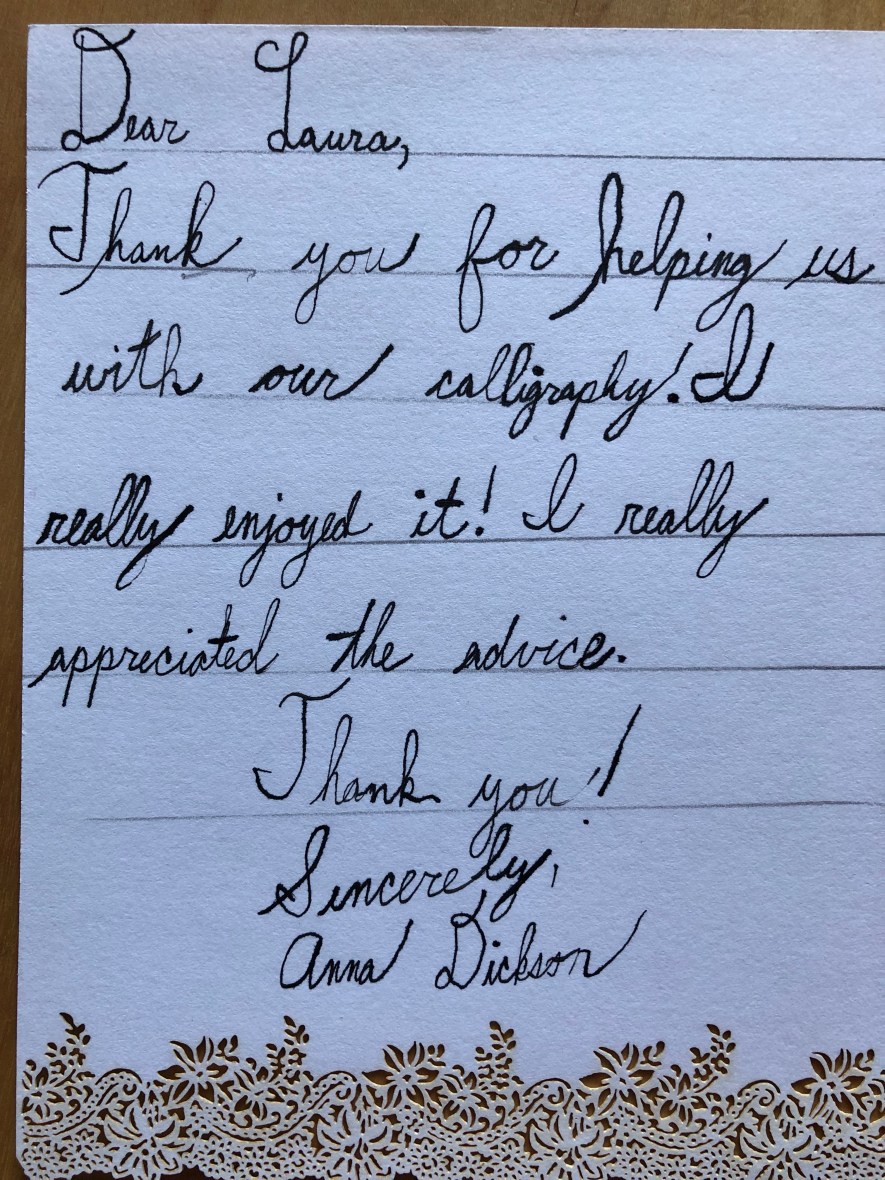 Dear Laura,
Thank you for helping us
with our calligraphy! I
really enjoyed it! I really
appreciated the advice.
Thank you!
Sincerely,
Anna Dickson